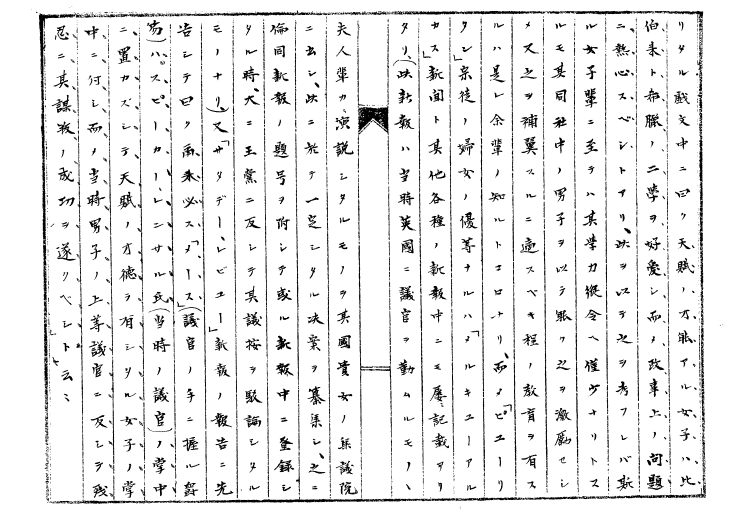 リタル戯文中ニ曰ク天賦ノ才能アル女子ハ比
伯来ト希臘ノ二学ヲ好愛シ而メ政事上ノ問題
ニ熱心スベシトアリ、此ヲ以テ之ヲ考フレバ斯
ル女子輩ニ至テハ其学力縦令ヘ僅少ナリトス
ルモ其同社中ノ男子ヲ以テ能ク之ヲ激励セシ
メ又之ヲ補翼スルニ適スベキ程ノ教育ヲ有ス
ルハ是レ余輩ノ知ルトコロナリ、而メ「ピユーリ
タン」宗徒ノ婦女ノ優等ナルハ「メルキユーアル
カス」新聞ト其他各種ノ新報中ニモ屡記載ヲリ
タリ(此新報ハ当時英国ニ議官ヲ勤ムルモノヽ
夫人輩カ演説シタルモノヲ其国貴女ノ集議院
ニ出シ、此ニ於テ一定シタル決案ヲ纂集シ、之ニ
倫同新報ノ題号ヲ附シテ或ル新報中ニ登録シ
タル時、大ニ王党ニ反シテ其議按ヲ駁論シタル
モノナリ)又「サタデー、レビユー」新報ノ報告ニ先
告シテ曰ク爾来必ス「メース」(議官ノ手ニ握ル
笏)ハ、スピーカー、レニサル氏(当時ノ議官)ノ掌中
ニ置カズシテ天賦ノ才徳ヲ有シタル女子ノ掌
中ニ付シ而メ当時男子ノ上等議官ニ反シテ残
忍ニ其謀叛ノ成功ヲ遂クベシト云々